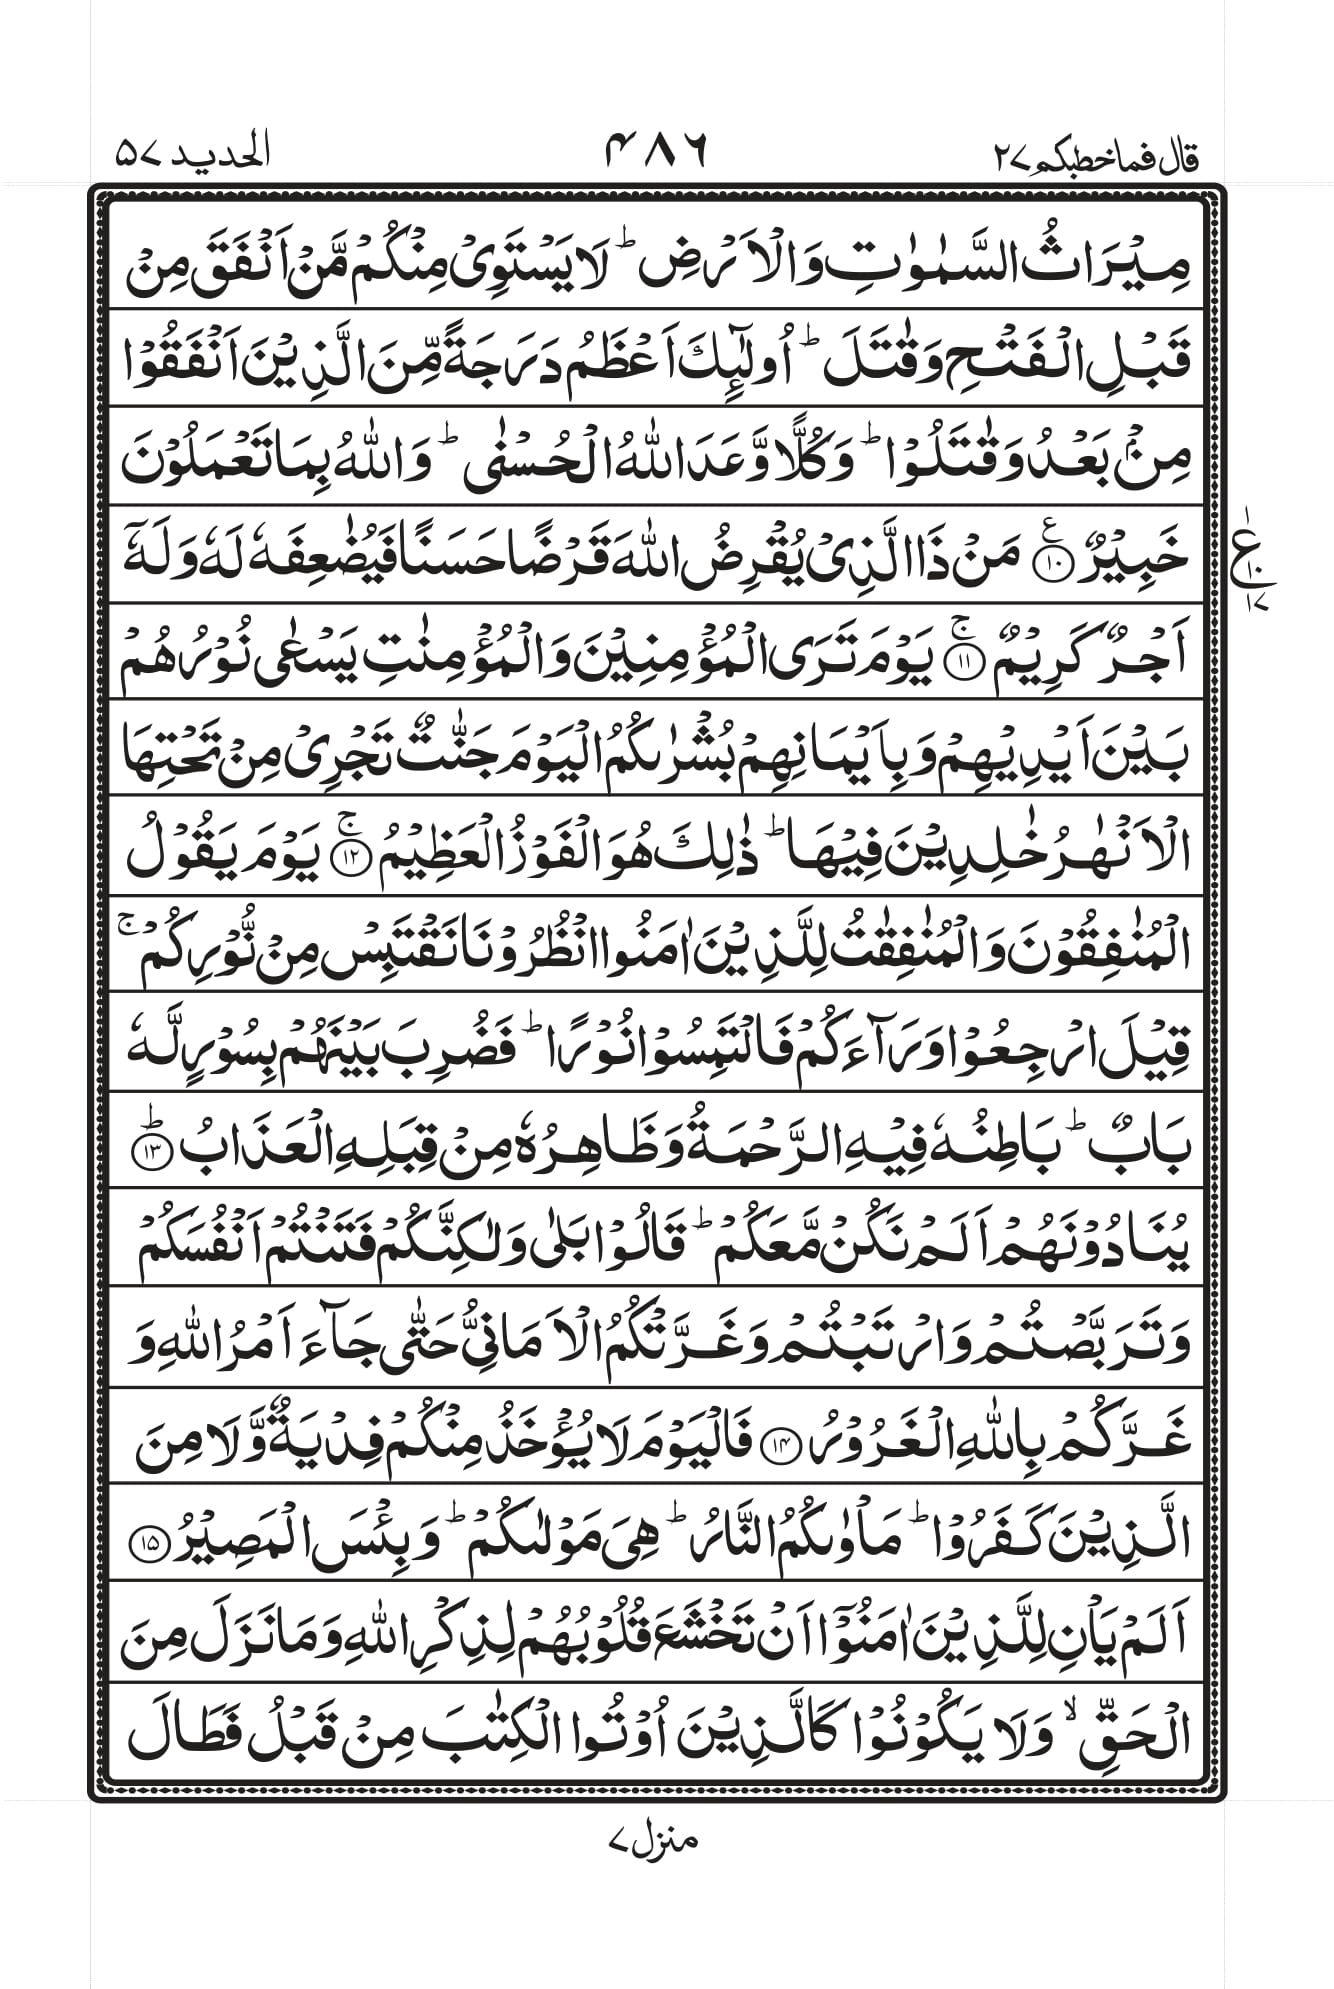 قال فماخطبکم ٢٧ ۴٨۶ الحديد ۵٧
مِيْرَاثُ السَّمٰوٰتِ وَالْاَرْضِ ؕ لَا يَسْتَوِىْ مِنْكُمْ مَّنْ اَنْفَقَ مِنْ
قَبْلِ الْفَتْحِ وَقٰتَلَ ؕ اُولٰٓئِكَ اَعْظَمُ دَرَجَةً مِّنَ الَّذِيْنَ اَنْفَقُوْا
مِنْۢ بَعْدُ وَقٰتَلُوْا ؕ وَكُلًّا وَّعَدَ اللّٰهُ الْحُسْنٰى ؕ وَاللّٰهُ بِمَا تَعْمَلُوْنَ
خَبِيْرٌ ﴿۱۰﴾ ع مَنْ ذَا الَّذِىْ يُقْرِضُ اللّٰهَ قَرْضًا حَسَنًا فَيُضٰعِفَهٗ لَهٗ وَلَهٗۤ
ع ١ ١٠ ١٧
اَجْرٌ كَرِيْمٌ ﴿۱۱﴾ ۚ يَوْمَ تَرَى الْمُؤْمِنِيْنَ وَالْمُؤْمِنٰتِ يَسْعٰى نُوْرُهُمْ
بَيْنَ اَيْدِيْهِمْ وَبِاَيْمَانِهِمْ بُشْرٰىكُمُ الْيَوْمَ جَنّٰتٌ تَجْرِىْ مِنْ تَحْتِهَا
الْاَنْهٰرُ خٰلِدِيْنَ فِيْهَا ؕ ذٰلِكَ هُوَ الْفَوْزُ الْعَظِيْمُ ﴿۱۲﴾ ۚ يَوْمَ يَقُوْلُ
الْمُنٰفِقُوْنَ وَالْمُنٰفِقٰتُ لِلَّذِيْنَ اٰمَنُوا انْظُرُوْنَا نَقْتَبِسْ مِنْ نُّوْرِكُمْ ۚ
قِيْلَ ارْجِعُوْا وَرَآءَكُمْ فَالْتَمِسُوْا نُوْرًا ؕ فَضُرِبَ بَيْنَهُمْ بِسُوْرٍ لَّهٗ
بَابٌ ؕ بَاطِنُهٗ فِيْهِ الرَّحْمَةُ وَظَاهِرُهٗ مِنْ قِبَلِهِ الْعَذَابُ ﴿۱۳﴾ ؕ
يُنَادُوْنَهُمْ اَلَمْ نَكُنْ مَّعَكُمْ ؕ قَالُوْا بَلٰى وَلٰكِنَّكُمْ فَتَنْتُمْ اَنْفُسَكُمْ
وَتَرَبَّصْتُمْ وَارْتَبْتُمْ وَغَرَّتْكُمُ الْاَمَانِىُّ حَتّٰى جَآءَ اَمْرُ اللّٰهِ وَ
غَرَّكُمْ بِاللّٰهِ الْغَرُوْرُ ﴿۱۴﴾ فَالْيَوْمَ لَا يُؤْخَذُ مِنْكُمْ فِدْيَةٌ وَّلَا مِنَ
الَّذِيْنَ كَفَرُوْا ؕ مَاْوٰىكُمُ النَّارُ ؕ هِىَ مَوْلٰىكُمْ ؕ وَبِئْسَ الْمَصِيْرُ ﴿۱۵﴾
اَلَمْ يَاْنِ لِلَّذِيْنَ اٰمَنُوْۤا اَنْ تَخْشَعَ قُلُوْبُهُمْ لِذِكْرِ اللّٰهِ وَمَا نَزَلَ مِنَ
الْحَقِّ ۙ وَلَا يَكُوْنُوْا كَالَّذِيْنَ اُوْتُوا الْكِتٰبَ مِنْ قَبْلُ فَطَالَ
منزل ٧